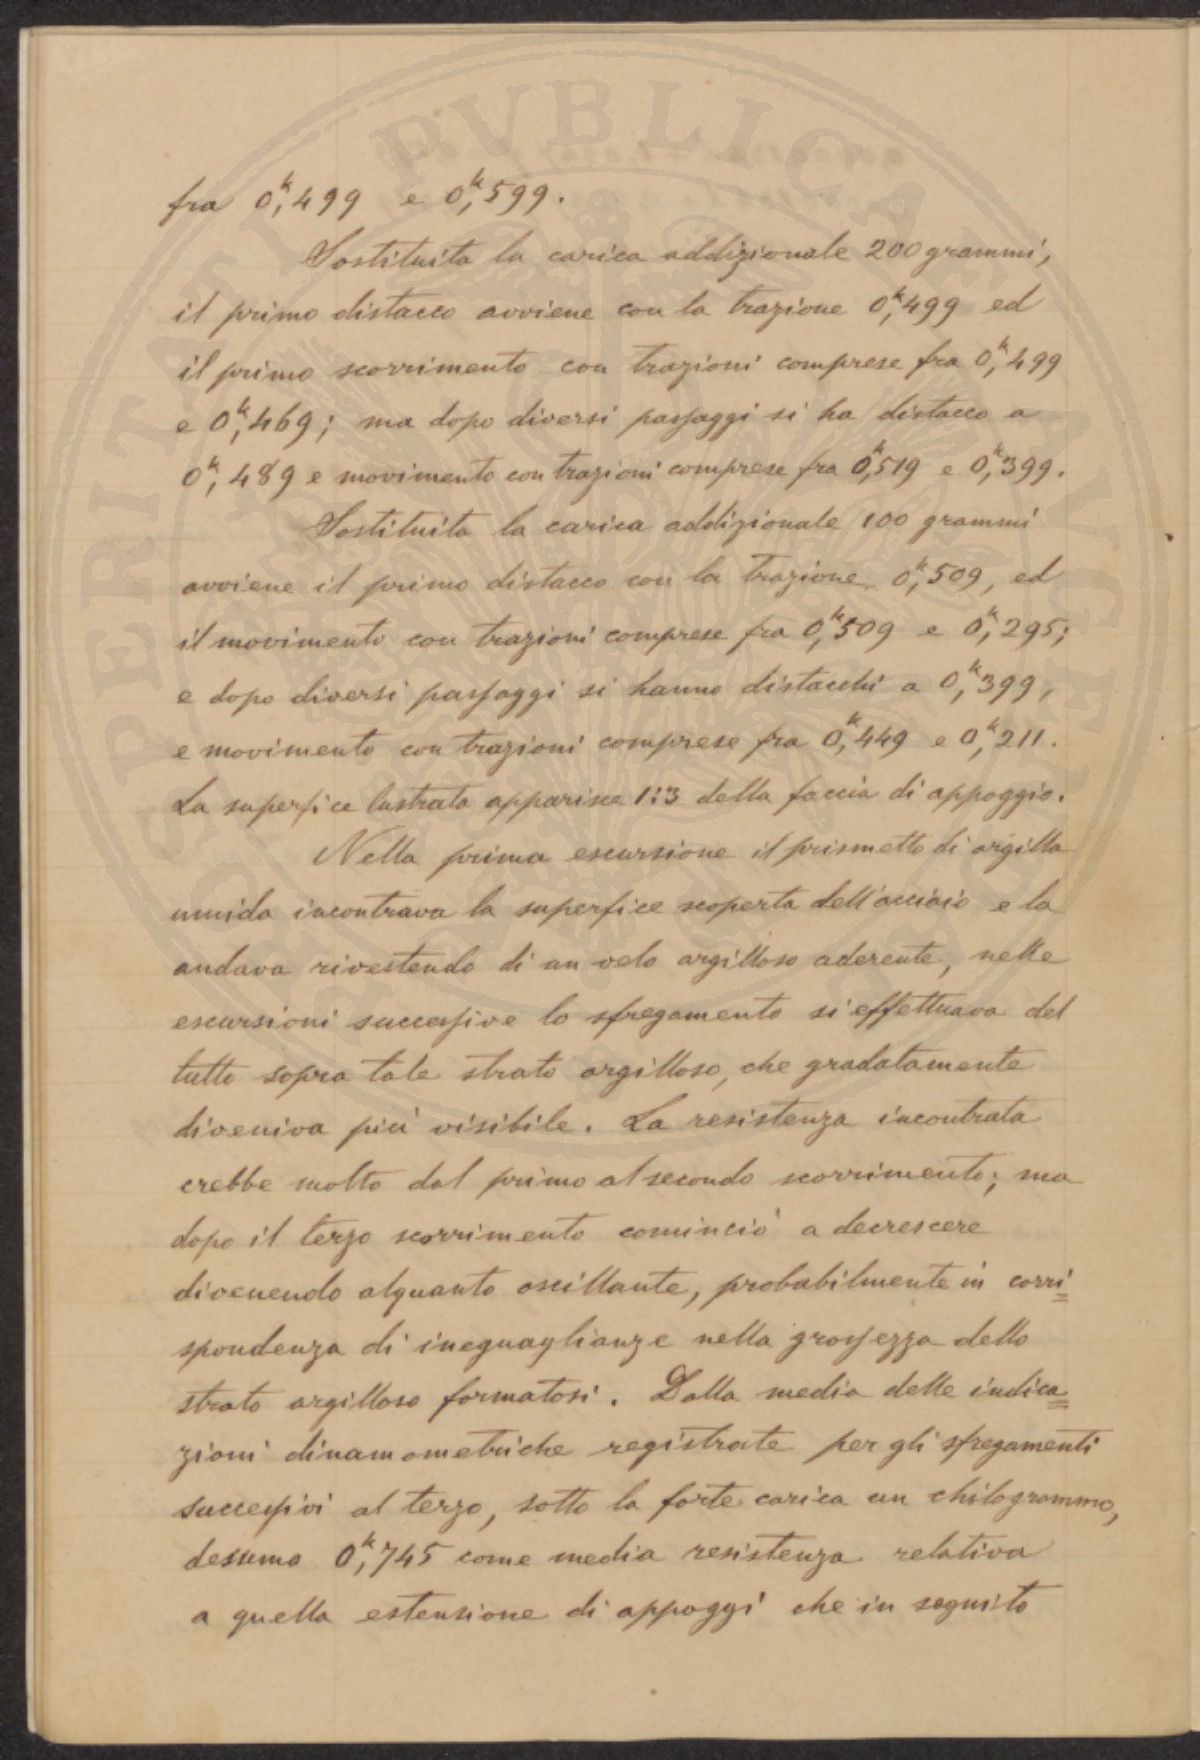 fra 0,ᵏ499 e 0,ᵏ599.
Sostituita la carica addizionale 200 grammi,
il primo distacco avviene con la trazione 0,ᵏ499 ed
il primo scorrimento con trazioni comprese fra 0,ᵏ499
e 0,ᵏ469; ma dopo diversi passaggi si ha distacco a
0,ᵏ489 e movimento con trazioni comprese fra 0,ᵏ519 e 0,ᵏ399.
Sostituita la carica addizionale 100 grammi
avviene il primo distacco con la trazione 0,ᵏ509, ed
il movimento con trazioni comprese fra 0,ᵏ509 e 0,ᵏ295;
e dopo diversi passaggi si hanno distacchi a 0,ᵏ399,
e movimento con trazioni comprese fra 0,ᵏ449 e 0,ᵏ211.
La superfice lustrata apparisce 1:3 della faccia di appoggio.
Nella prima escursione il prismetto di argilla
umida incontrava la superfice scoperta dell'acciaio e la
andava rivestendo di un velo argilloso aderente, nelle
escursioni successive lo sfregamento si effettuava del
tutto sopra tale strato argilloso, che gradatamente
diveniva più visibile. La resistenza incontrata
crebbe molto dal primo al secondo scorrimento; ma
dopo il terzo scorrimento cominciò a decrescere
divenendo alquanto oscillante, probabilmente in corri=
spondenza di ineguaglianze nella grossezza dello
strato argilloso formatosi. Dalla media delle indica=
zioni dinamometriche registrate per gli sfregamenti
successivi al terzo, sotto la forte carica un chilogrammo,
desumo 0,ᵏ745 come media resistenza relativa
a quella estensione di appoggi che in seguito
SPERITATI PVBLICAE AVGENDAE